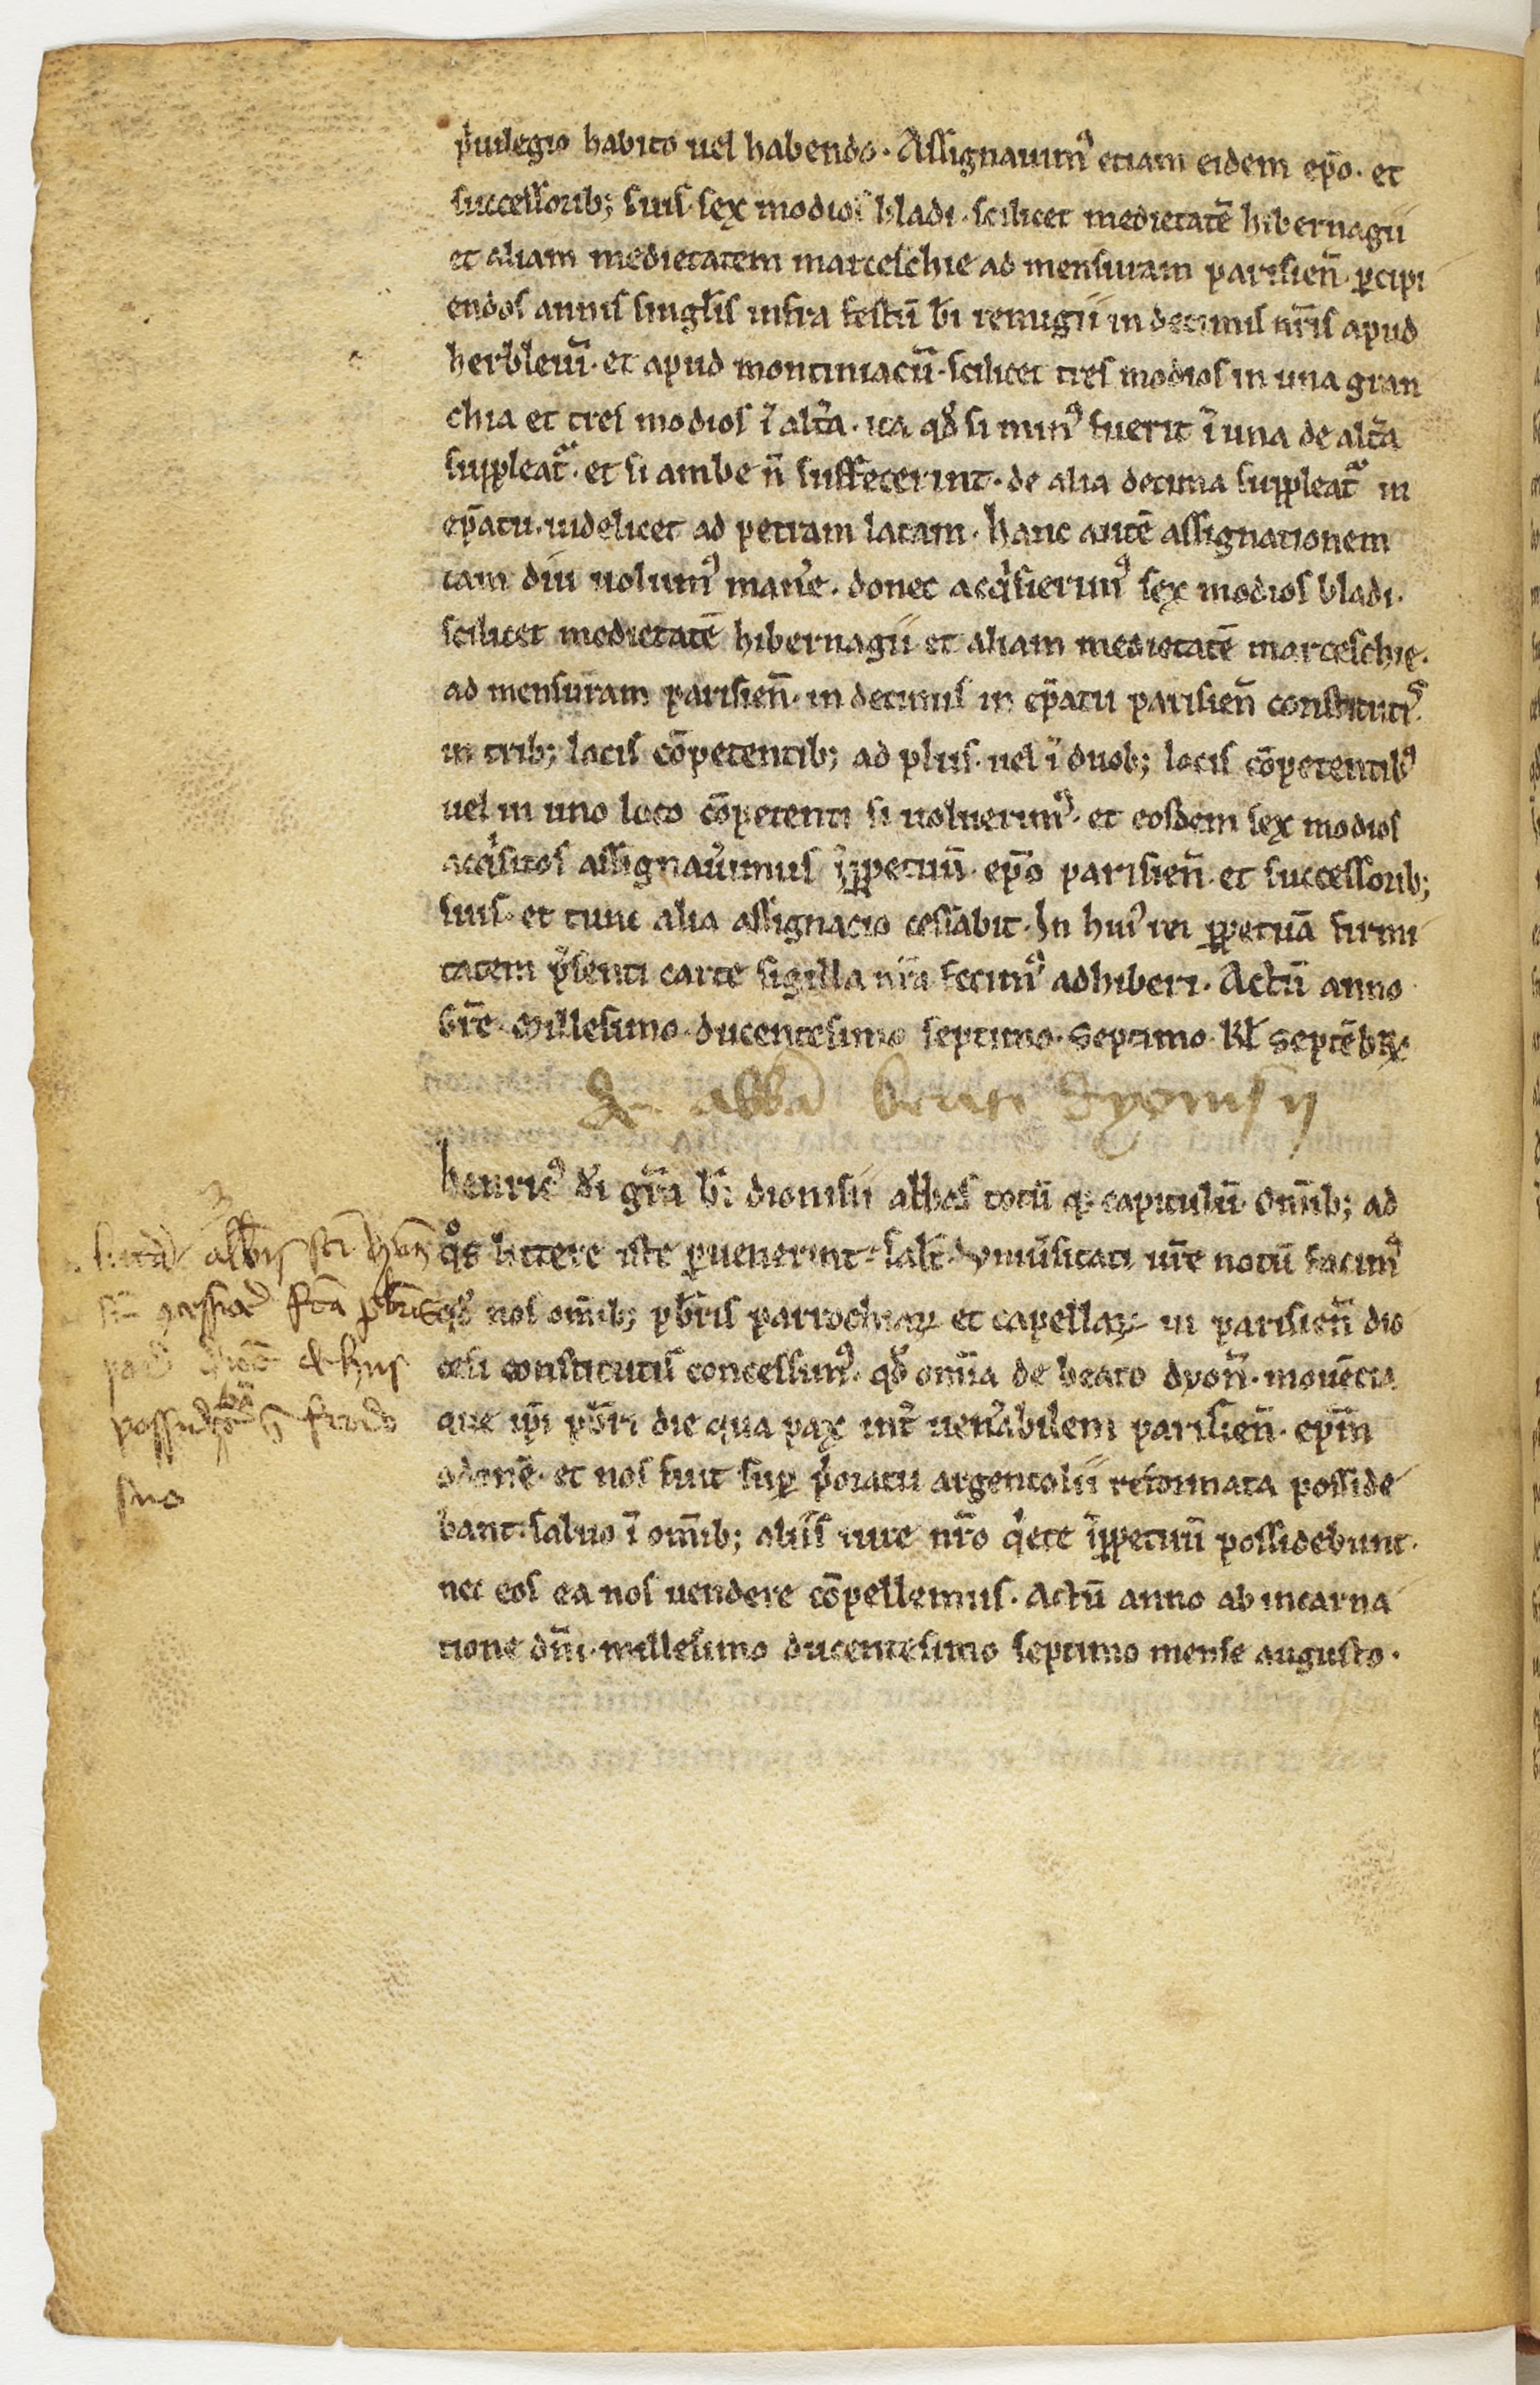 p̾uilegio habito uel habendo. Assignauimꝰ etiam eidem ep̄o. et
successorib; suis. sex modios bladi. scilicet medietatē hibernagii
et aliam medietatem marceschie ad mensuram parisien̄. ꝑcipi
endos annis singl̾is infra festū b̄i remigii in decimis nr̄is apud
herbleiū. et apud montiniacū. scilicet tres modios in una gran
chia et tres modios ī alt̾a. ita qd̾ si minꝰ fuerit ī una de alt̾a
suppleat᷑. et si ambe n̄ suffecerint. de alia decima suppleat᷑ in
ep̄atu. uidelicet ad petram latam. hanc autē assignationem
tam diu uolumꝰ man̾e. donec acq̾sierimꝰ sex modios bladi.
scilicet medietatē hibernagii et aliam medietatē marceschie.
ad mensuram parisien̄. in decimis in ep̄atu parisien̄ constitutis.
in trib; locis cōpetentib; ad plus. uel ī duob; locis cōpetentibꝰ
uel in uno loco cōpetenti si uoluerimꝰ. et eosdem sex modios
acq̾sitos assignau̾imus īꝑpetuū. ep̄o parisien̄. et successorib;
suis. et tunc alia assignacio cessabit. In huiꝰ rei ꝑpetuā firmi
tatem p̾senti carte sigilla nr̄a fecimꝰ adhiberi. Actū anno
gr̄e. Millesimo. ducentesimo septimo. Septimo. kl̾ septēbꝝ.
abbā beati dyonisii
henricꝰ d̾i gr̄a b̄i dionisii abbas totū q; capitulū. Om̄ib; ad
qͦs littere iste ꝑuenerint. sal̾t. vniu̾sitati ur̄e notū facimꝰ
qd̾ nos om̄ib; pb̄ris parrochiaꝝ et capellaꝝ in parisien̄ dio
cesi constitutis concessimꝰ. qd̾ om̄ia de beato dyon̄. mouētia
que ip̄i pb̄ri die qua pax int̾ uen̾abilem parisien̄. ep̄m
odonē. et nos fuit suꝑ p̾oratu argentolii reformata posside
bant. saluo ī om̄ib; aliis iure nr̄o q̾ete īꝑpetuū possidebunt.
nec eos ea nos uendere cōpellemus. Actū anno ab incarna
tione dn̄i. millesimo ducentesimo septimo mense augusto.
abb̄is sc̄i
fc̄a pb̄ris
suo